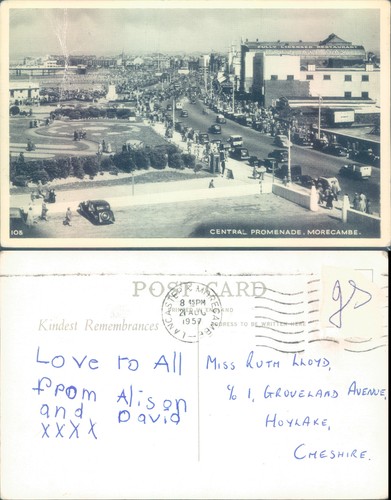 FULLY LICENSED RESTAURANT
105
CENTRAL PROMENADE, MORECAMBE.
POST CARD
Kindest Remembrances
ADDRESS TO BE WRITTEN HERE
LANCASTER & MORECAMBE
8 15 PM
21 AUG
1957
Love to All
from Alison
and David
XXXX
Miss Ruth Lloyd,
c/o 1, Groveland Avenue,
Hoylake,
Cheshire.